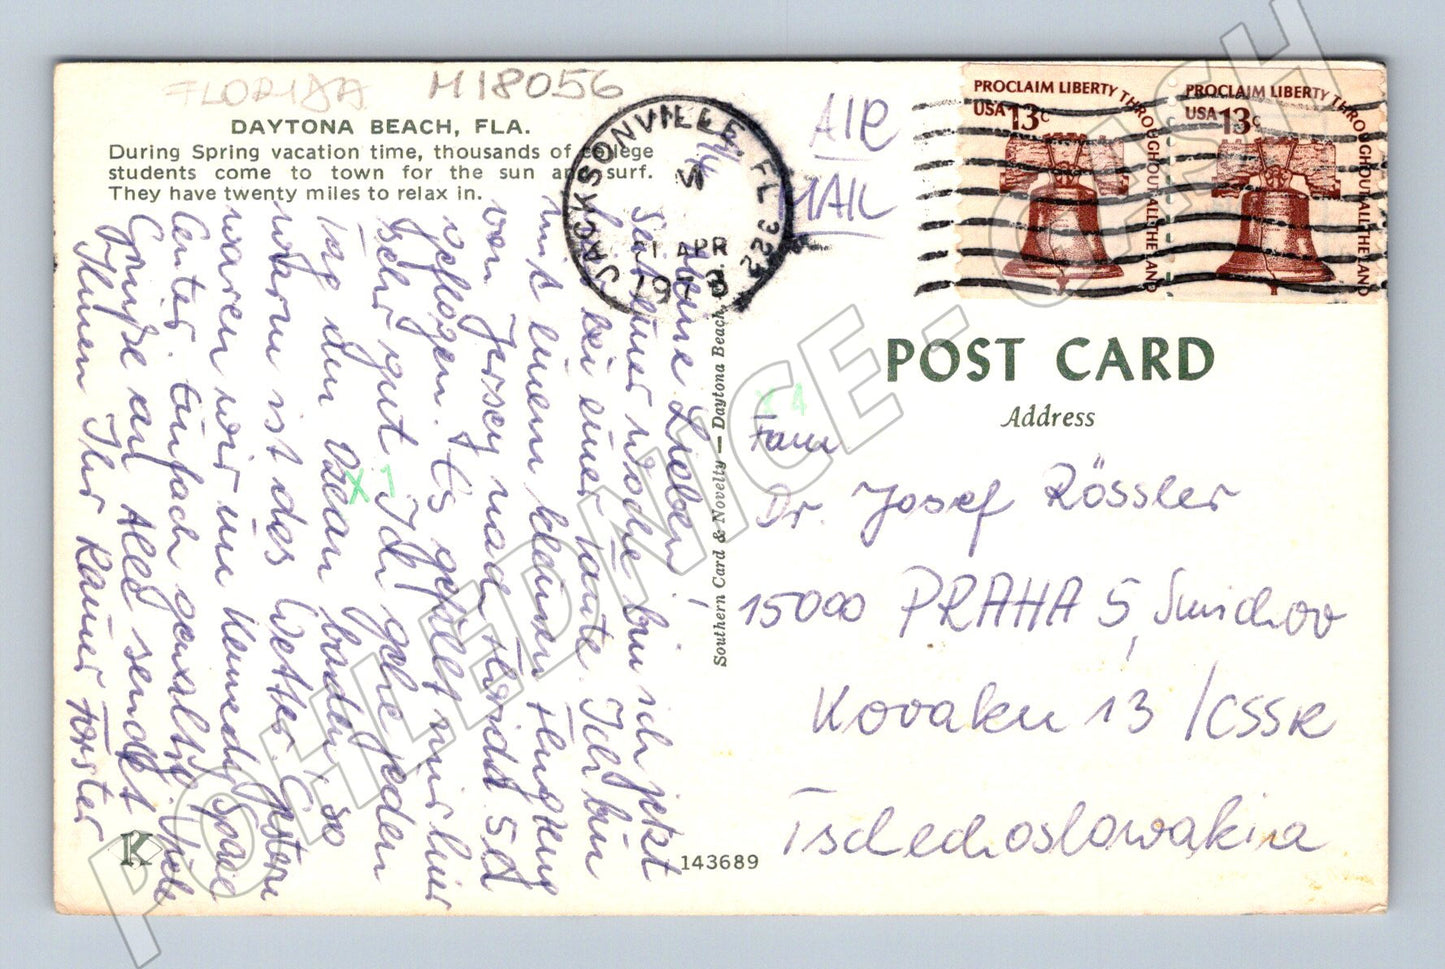 FLORIDA M18056
DAYTONA BEACH, FLA.
During Spring vacation time, thousands of college
students come to town for the sun and surf.
They have twenty miles to relax in.
AIR
MAIL
JACKSONVILLE, FL 322
APR
1978
PROCLAIM LIBERTY THROUGHOUT ALL THE LAND
USA 13c
PROCLAIM LIBERTY THROUGHOUT ALL THE LAND
USA 13c
Meine Lieben!
Seit einer Woche bin ich jetzt
hier bei einer Tante. Ich bin
mit einem kleinen Flugzeug
von Jersey nach Florida
geflogen. Es gefällt mir hier
sehr gut. Ich gehe jeden
Tag den Ozean baden, so
warm ist das Wetter. Gestern
waren wir im Kennedy Space
Center. Einfach gewaltig. Viele
Grüße an Alle sendet
Ihnen Ihr Rainer Förster
X1
X4
Southern Card & Novelty — Daytona Beach,
K
143689
POST CARD
Address
Fam
Dr. Josef Rössler
15000 PRAHA 5, Smichov
Kovaku 13 /CSSR
Tschechoslowakia
POHLEDNICE-CASH